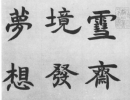 雪齋
境發
夢想